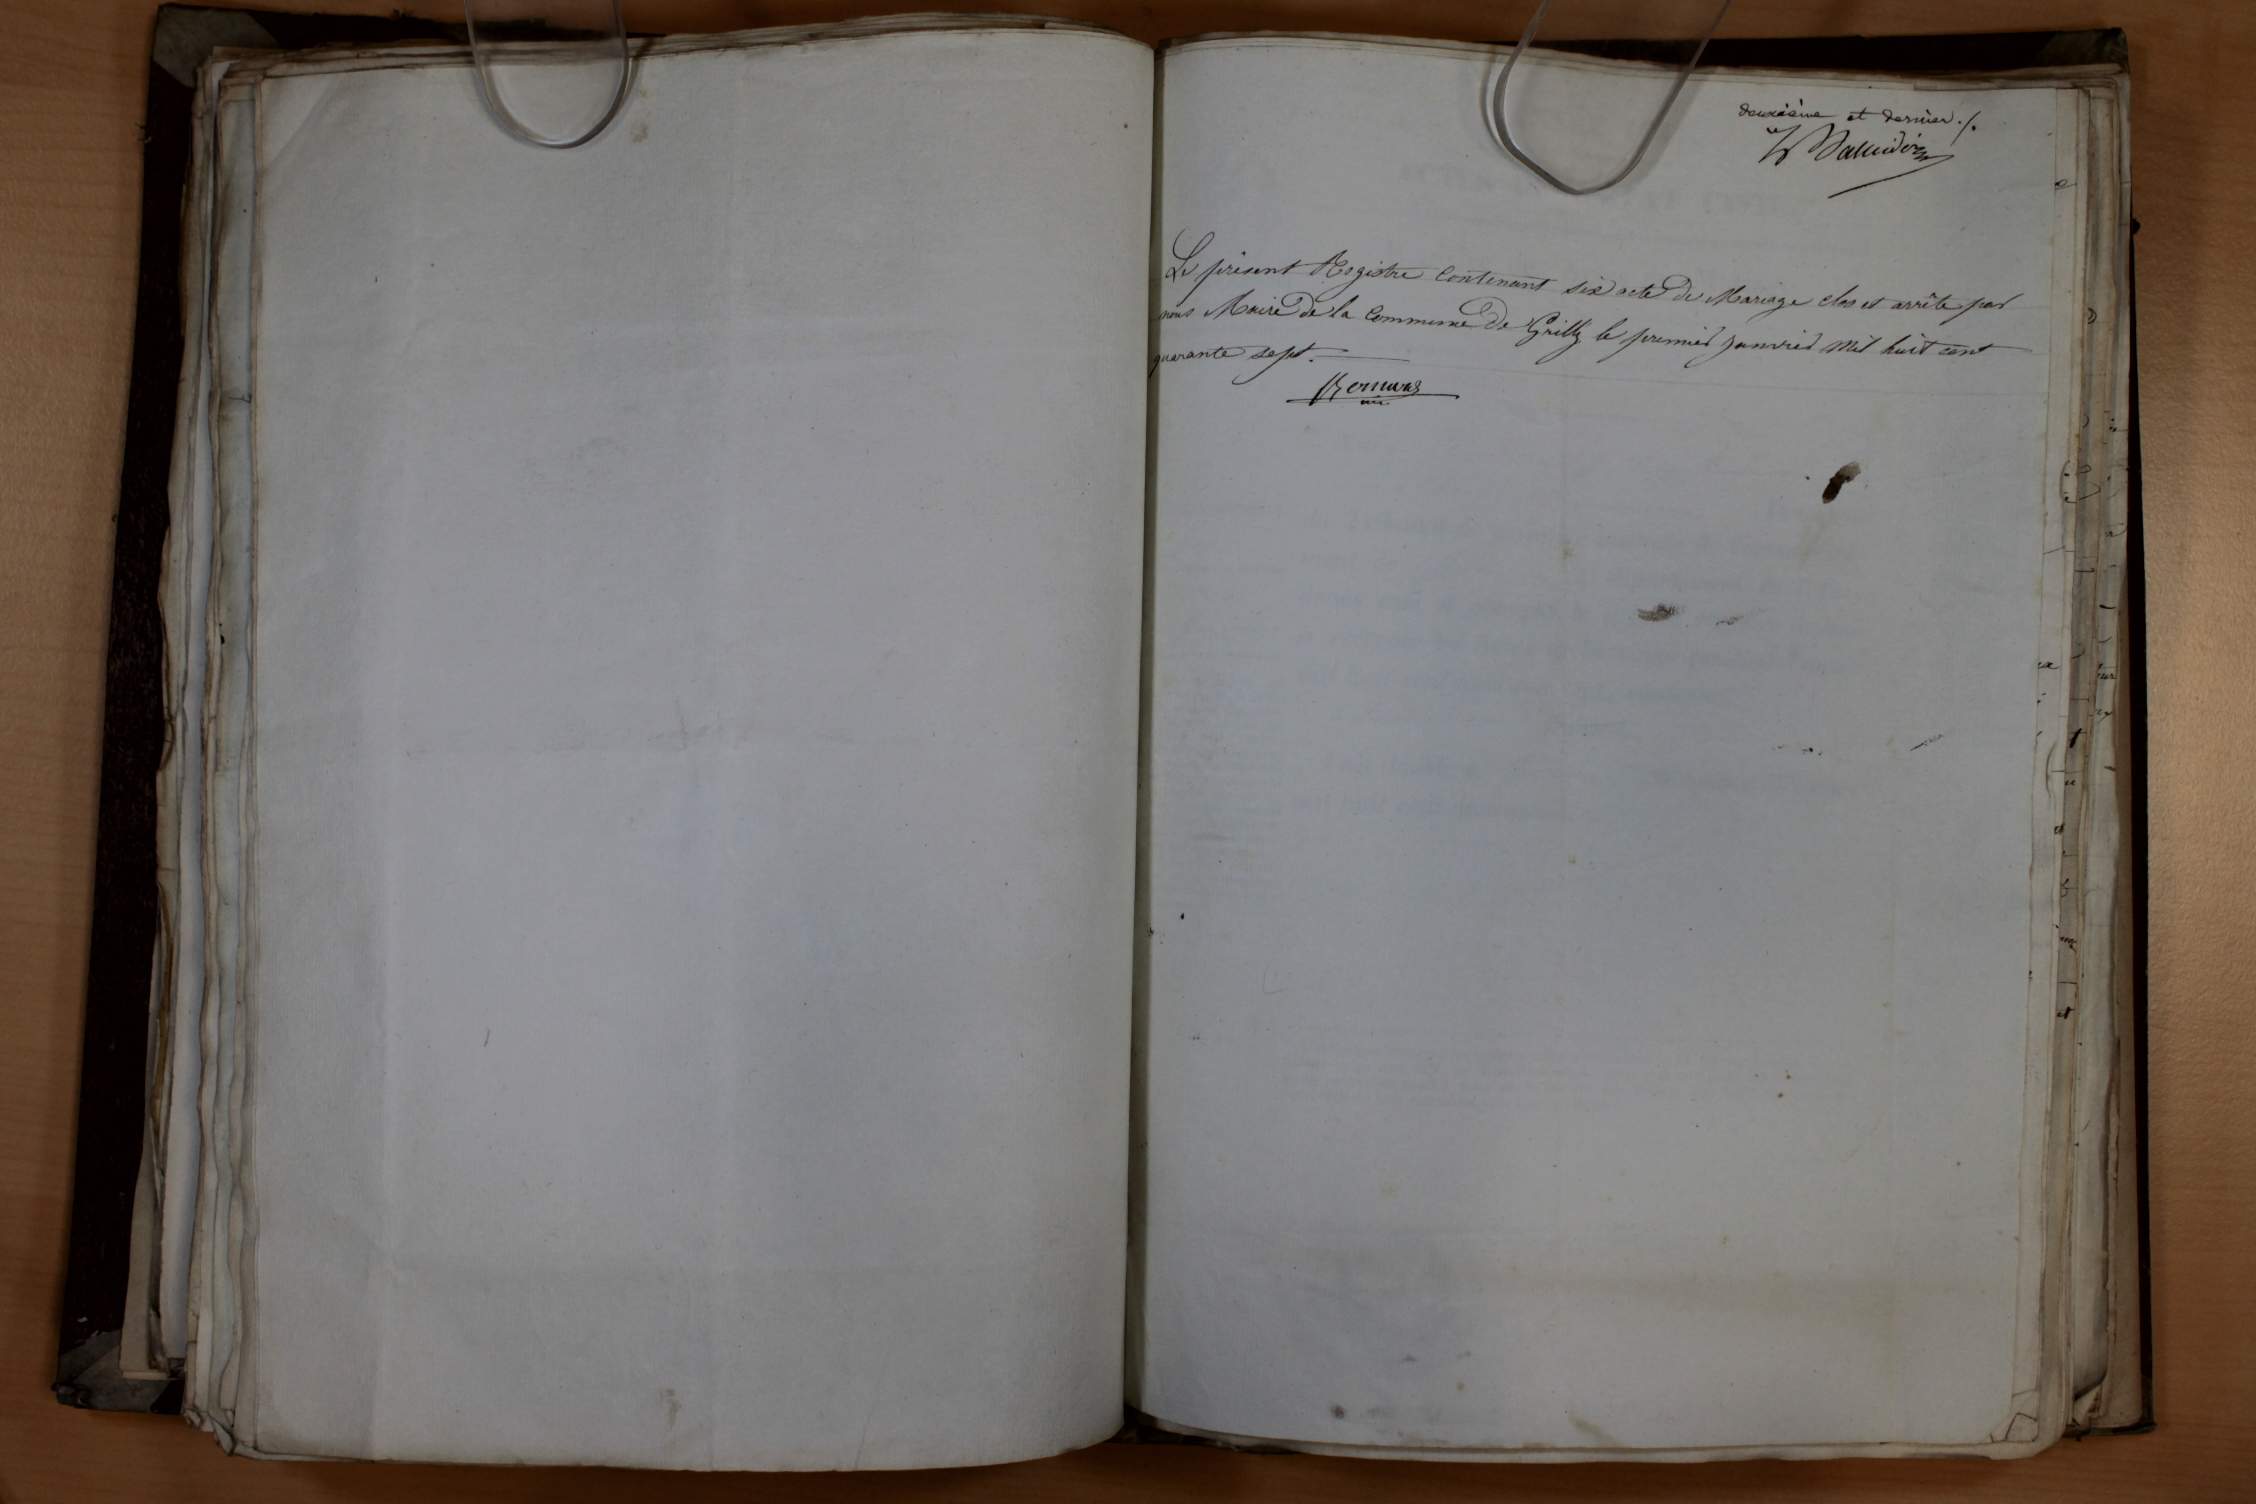 deuxième et dernier ./.
Le présent Registre contenant six acte de Mariage clos et arrêté par
nous Maire de la commune de Grilly le premier Janvier mil huit cent
quarante sept.